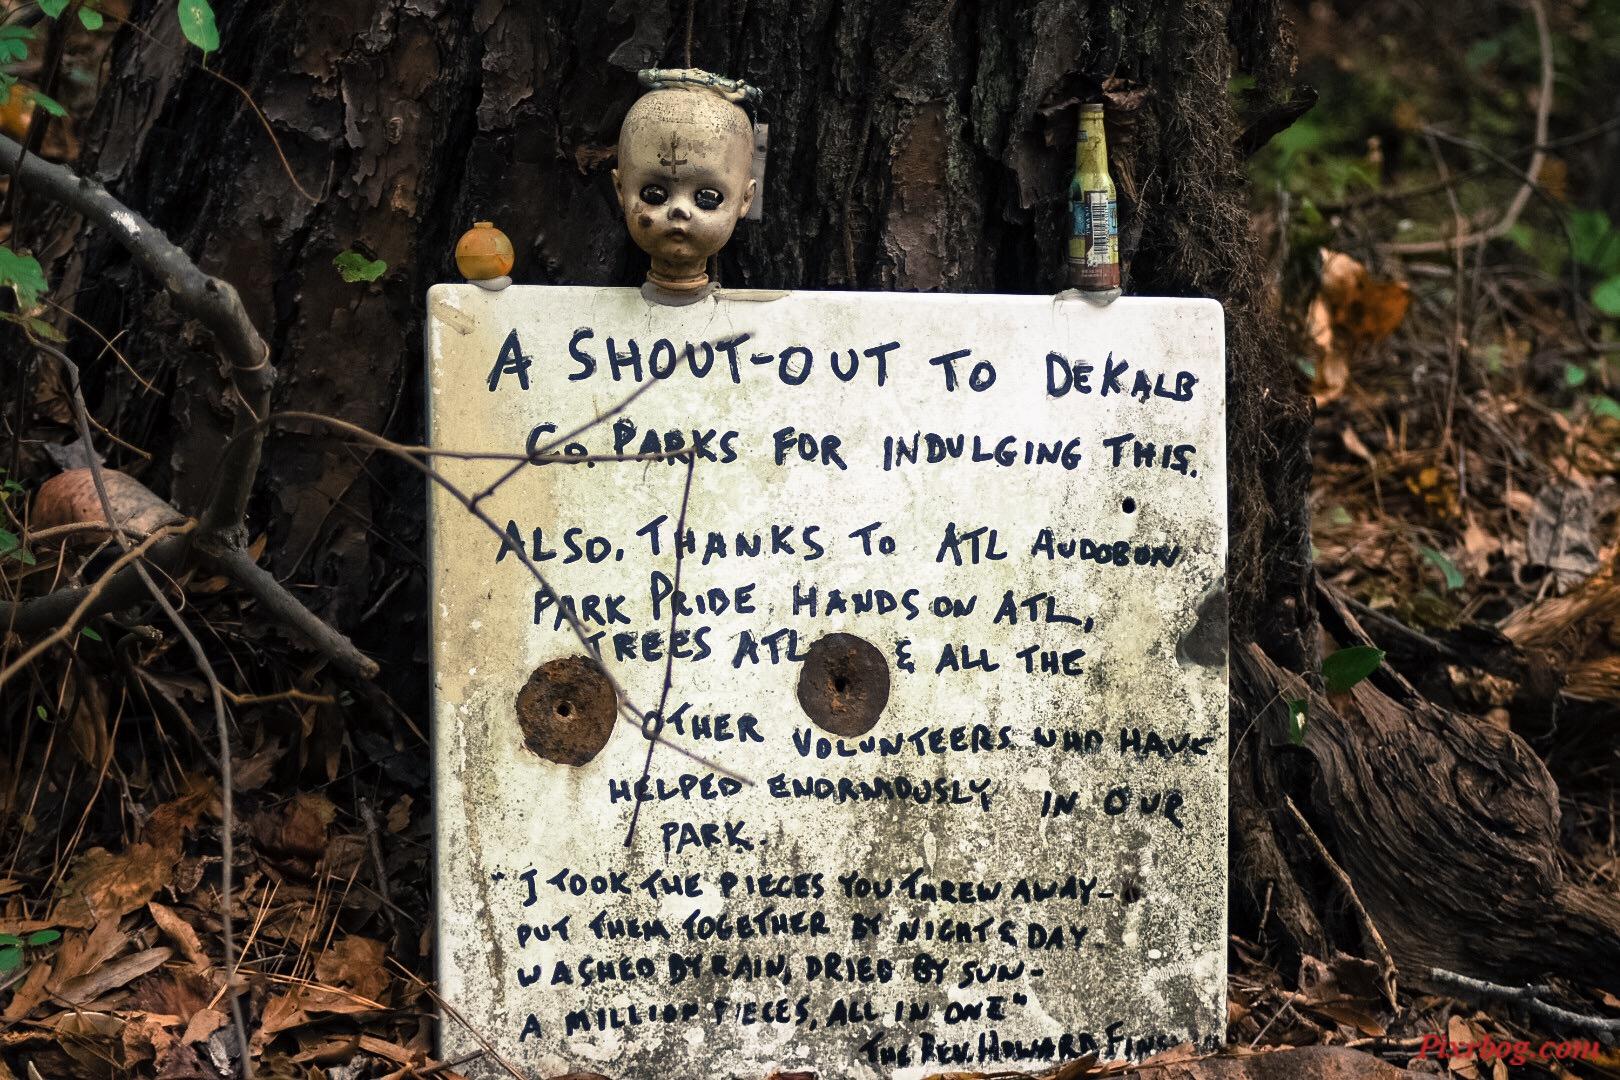 A SHOUT-OUT TO DEKALB
CO. PARKS FOR INDULGING THIS.
ALSO, THANKS TO ATL AUDOBON
PARK PRIDE HANDS ON ATL,
TREES ATL & ALL THE
OTHER VOLUNTEERS WHO HAVE
HELPED ENORMOUSLY IN OUR
PARK.
"I TOOK THE PIECES YOU THREW AWAY-
PUT THEM TOGETHER BY NIGHT & DAY
WASHED BY RAIN, DRIED BY SUN-
A MILLION PIECES, ALL IN ONE"
THE REV. HOWARD
Pixrbog.com